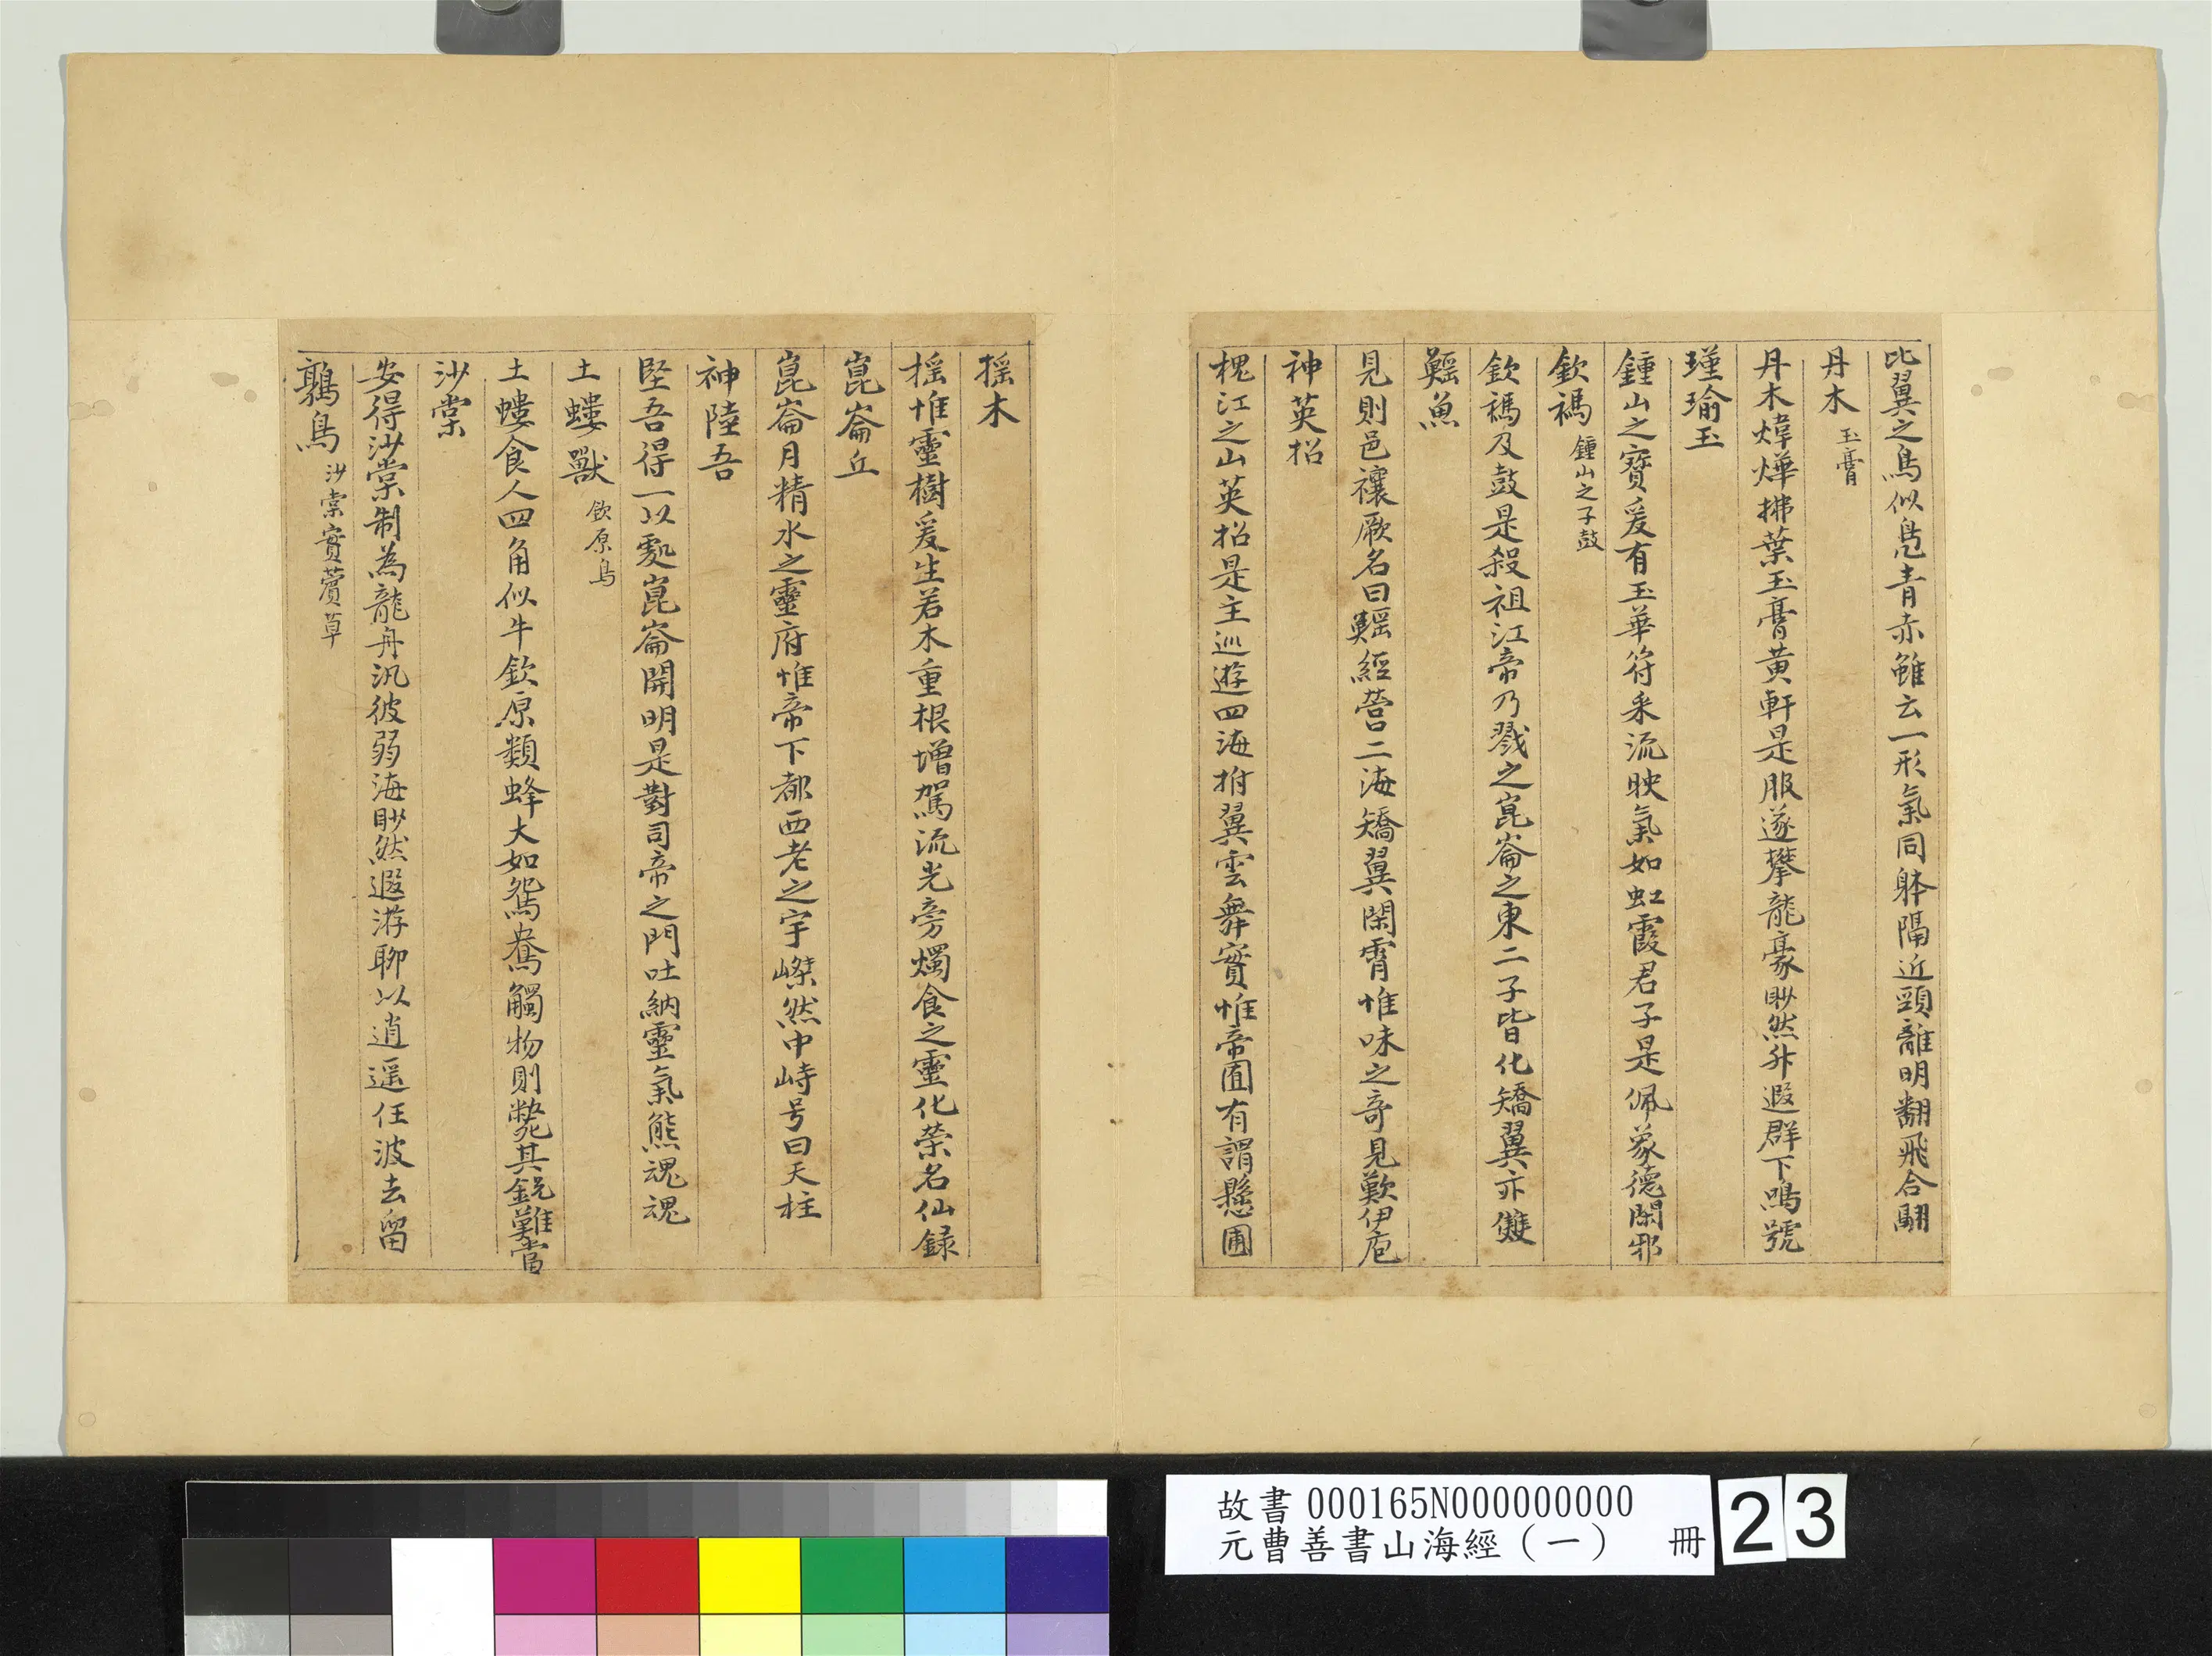 比翼之鳥似鳧青赤雖云一形氣同體隔近頸離明翻飛合翮
丹木 玉膏
丹木煒燁拂葉玉膏黃軒是服遂攀龍豪眇然升遐群下鳴號
瑾瑜玉
鍾山之寶爰有玉華符采流映氣如虹霞君子是佩象德閑邪
欽䲹 鍾山之子鼓
欽䲹及鼓是殺祖江帝乃戮之崑崙之東二子皆化矯翼亦雙
鰩魚
見則邑禳厥名曰鰩經營二海矯翼閑霄惟味之奇見歎伊庖
神英招
槐江之山英招是主巡遊四海拊翼雲舞實惟帝囿有謂懸圃
搖木
搖惟靈樹爰生若木重根增駕流光旁燭食之靈化榮名仙録
崑崙丘
崑崙月精水之靈府惟帝下都西老之宇嵥然中峙号曰天柱
神陸吾
堅吾得一以處崑崙開明是對司帝之門吐納靈氣熊魂魂
土螻獸 欽原鳥
土螻食人四角似牛欽原類蜂大如鴛鴦觸物則斃其銳難當
沙棠
安得沙棠制為龍舟汎彼弱海眇然遐游聊以逍遥任波去留
鶉鳥 沙棠實薲草
故書 000165N000000000
元曹善書山海經（一） 冊
23